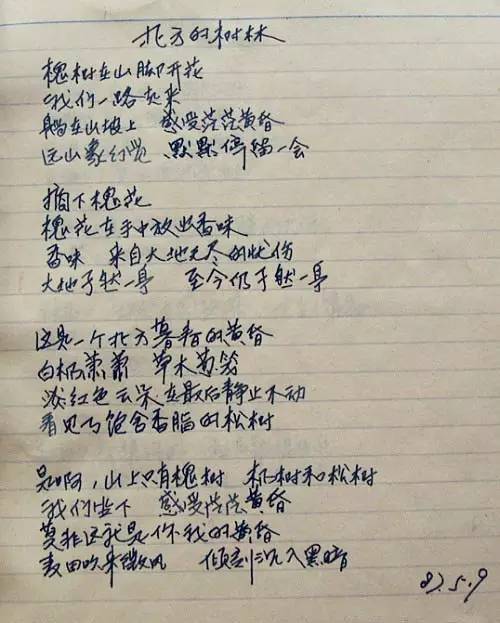 北方的树林
槐树在山脚开花
我们一路走来
躺在山坡上 感受茫茫黄昏
远山象幻觉 默默停留一会
摘下槐花
槐花在手中放出香味
香味 来自大地无尽的忧伤
大地孑然一身 至今仍孑然一身
这是一个北方暮春的黄昏
白杨萧萧 草木葱茏
淡红色云朵在最后静止不动
看见了饱含香脂的松树
是啊，山上只有槐树 杨树和松树
我们坐下 感受茫茫黄昏
莫非这就是你我的黄昏
麦田吹来微风 顷刻沉入黑暗
87.5.9